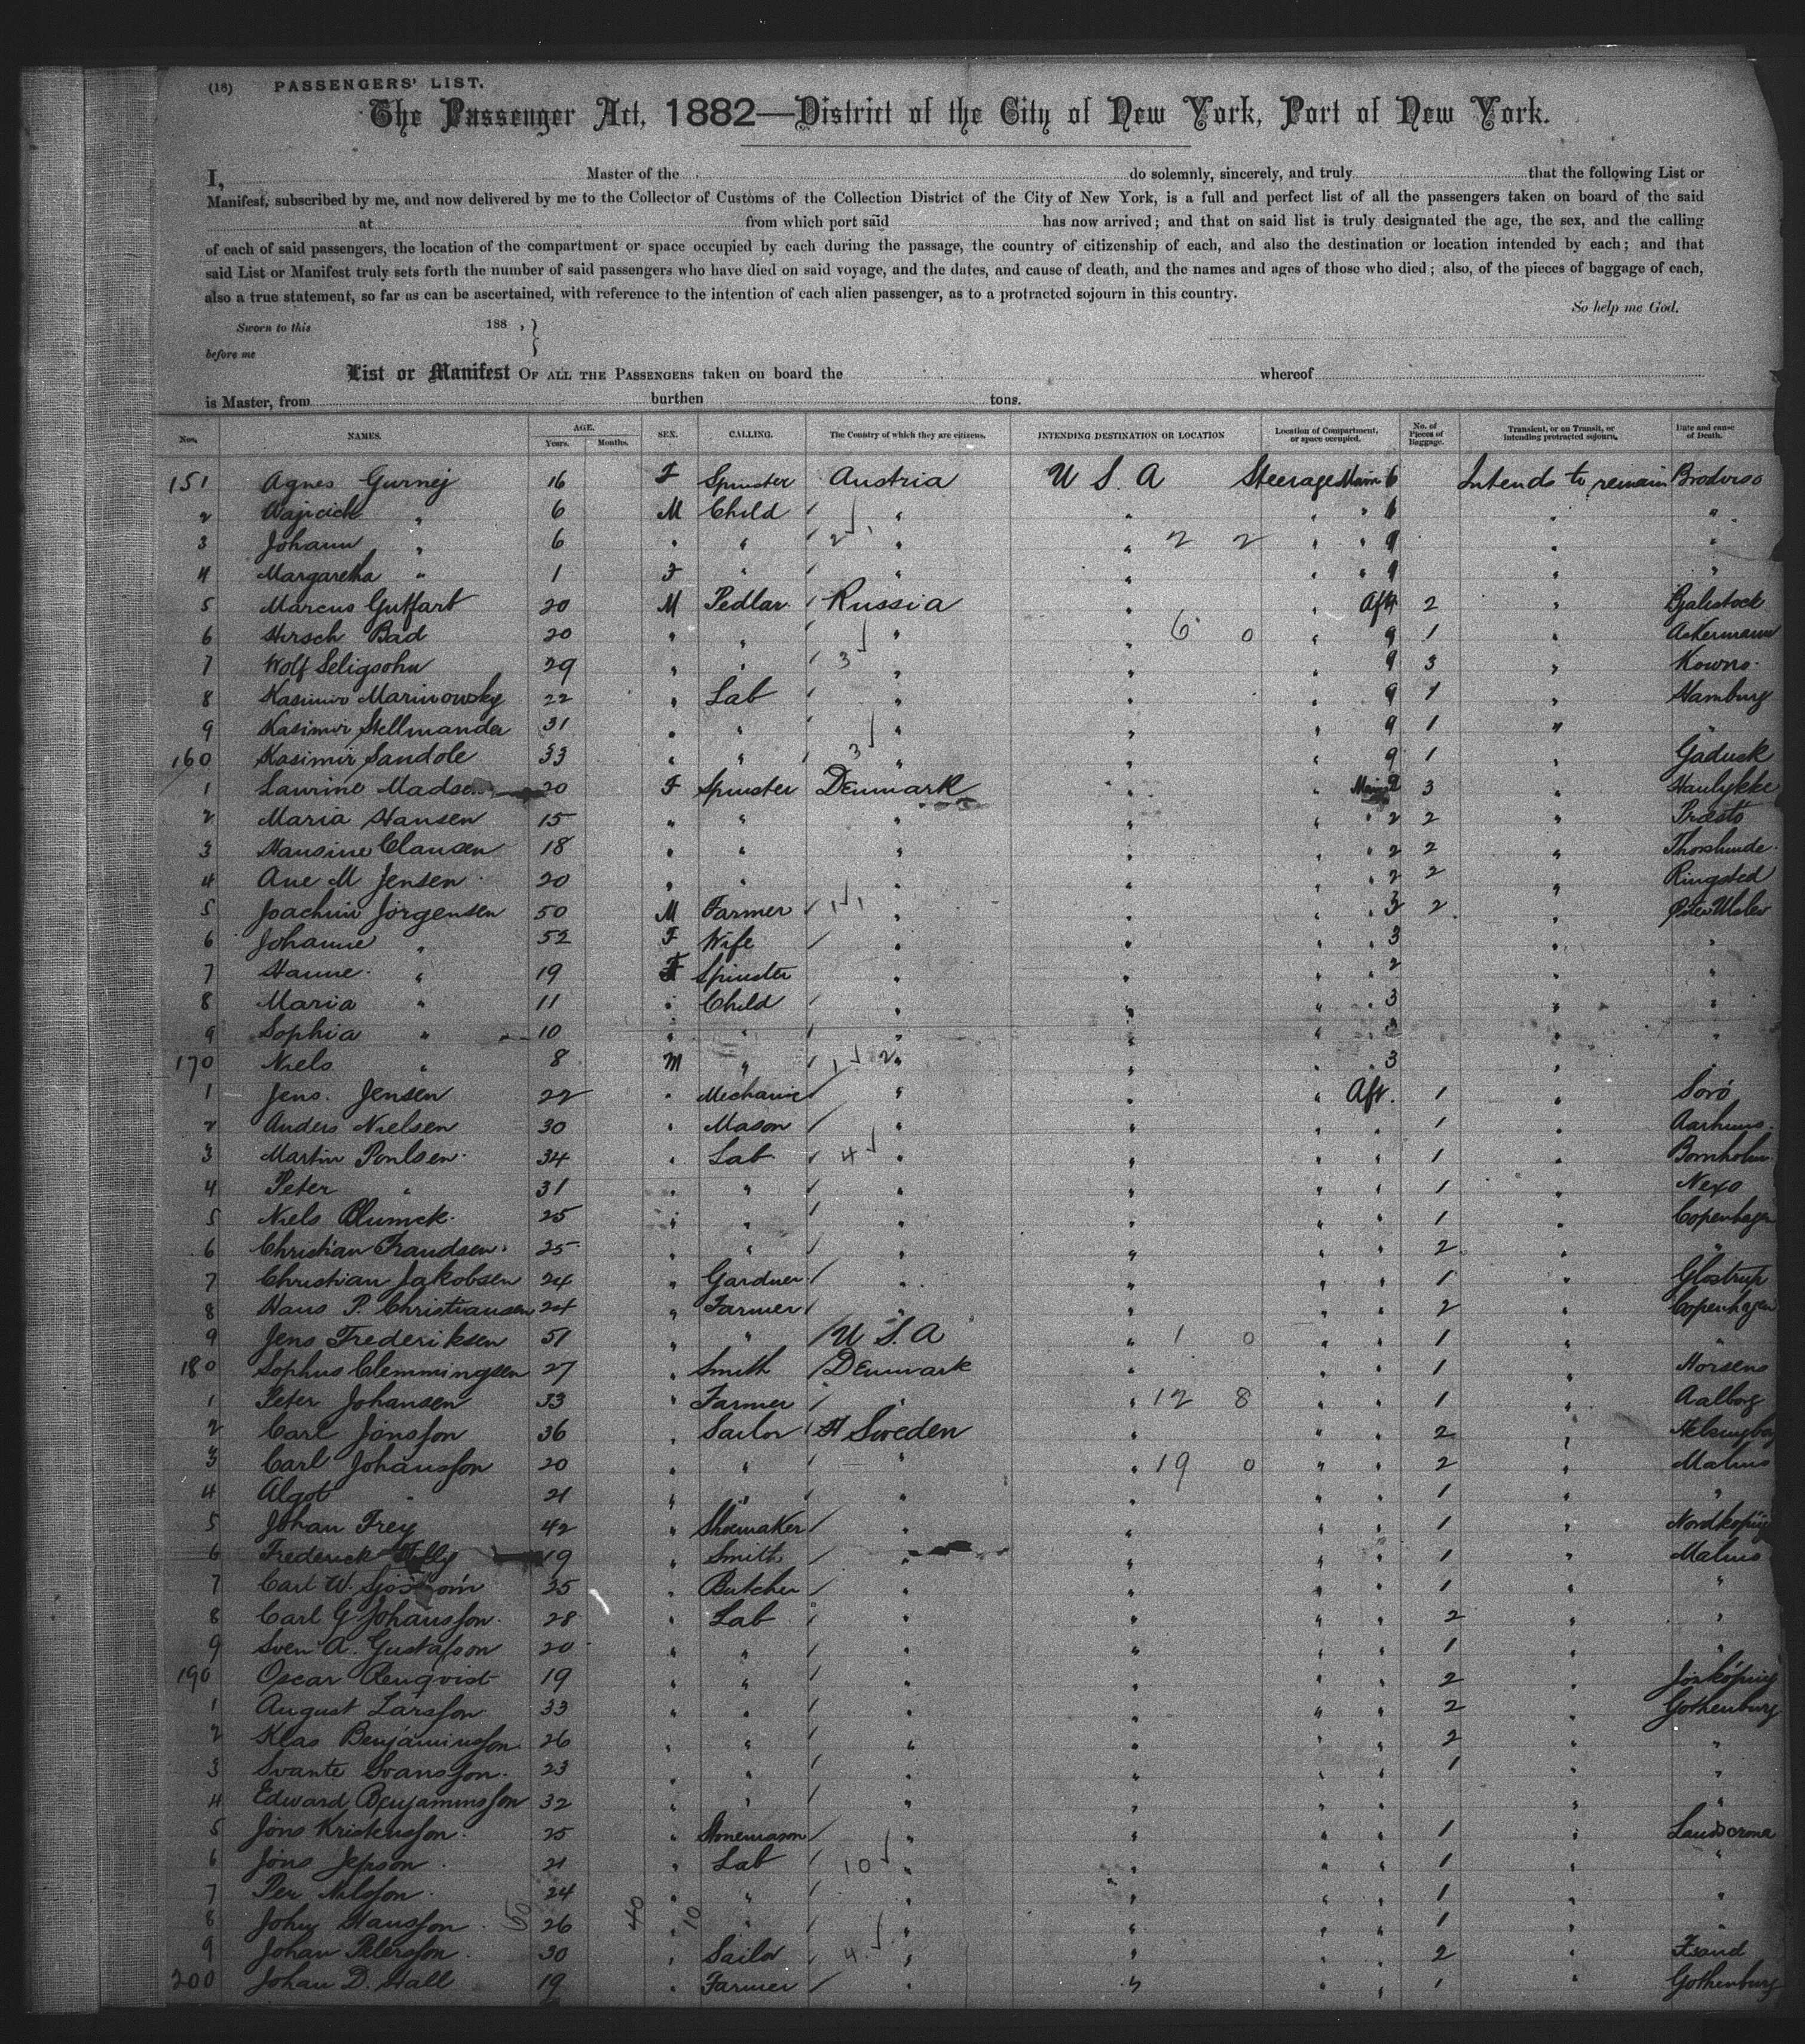 (18) PASSENGERS' LIST.
The Passenger Act, 1882—District of the City of New York, Port of New York.
I, Master of the do solemnly, sincerely, and truly that the following List or
Manifest, subscribed by me, and now delivered by me to the Collector of Customs of the Collection District of the City of New York, is a full and perfect list of all the passengers taken on board of the said
at from which port said has now arrived; and that on said list is truly designated the age, the sex, and the calling
of each of said passengers, the location of the compartment or space occupied by each during the passage, the country of citizenship of each, and also the destination or location intended by each; and that
said List or Manifest truly sets forth the number of said passengers who have died on said voyage, and the dates, and cause of death, and the names and ages of those who died; also, of the pieces of baggage of each,
also a true statement, so far as can be ascertained, with reference to the intention of each alien passenger, as to a protracted sojourn in this country.
So help me God.
Sworn to this 188 , }
before me
List or Manifest OF ALL THE PASSENGERS taken on board the whereof
is Master, from burthen tons.
Nos. NAMES. AGE. Years. Months. SEX. CALLING. The Country of which they are citizens. INTENDING DESTINATION OR LOCATION Location of Compartment, or space occupied. No. of Pieces of Baggage. Transient, or on Transit, or Intending protracted sojourn. Date and cause of Death.
151 Agnes Gurnej 16 F Spinster Austria U S. A Steerage Main 6 Intends to remain
2 " 6 M Child " " " " 6 " "
3 Johann " 6 " " 2 " " 2 2 " " 9 " "
4 Margaretha " 1 F " " " " " 9 " "
5 Marcus Guttfart 20 M Pedlar Russia " " Aft 2 " Bjalestock
6 Hirsch Bad 20 " " " " 6 0 " 9 1 " Ackermann
7 Wolf Seligsohn 29 " " 3 " " " 9 3 " Kowno.
8 Kasimir Marinowsky 22 " Lab " " " 9 1 " Hamburg
9 Kasimir Stellmander 31 " " " " " 9 1 " "
160 Kasimir Sandole 33 " " 3 " " " 9 1 "
1 Laurine Madsen 20 F Spinster Denmark " " Main 2 3 "
2 Maria Hansen 15 " " " " " " 2 2 " Præsto
3 Hansine Clausen 18 " " " " " " 2 2 "
4 Ane M Jensen 20 " " " " " " 2 2 " Ringsted
5 Joachim Jörgensen 50 M Farmer 1 1 " " " " 3 2 "
6 Johanne " 52 F Wife " " " " 3 " "
7 Hanne " 19 F Spinster " " " " 2 " "
8 Maria " 11 " Child " " " " 3 " "
9 Sophia " 10 " " " " " " 3 " "
170 Niels " 8 M " 1 2 " " " " 3 " "
1 Jens Jensen 22 " Mechanic " " " Aft. 1 " Sorö
2 Anders Nielsen 30 " Mason " " " " 1 " Aarhuus.
3 Martin Poulsen 34 " Lab 4 " " " " 1 " Bornholm
4 Peter " 31 " " " " " " 1 " Nexo
5 Niels 25 " " " " " " 1 " Copenhagen
6 Christian Frandsen 25 " " " " " " 2 " "
7 Christian Jakobsen 24 " Gardner " " " " 1 " Glostrup
8 Hans P. Christiansen 24 " Farmer " " " " 2 " Copenhagen
9 Jens Frederiksen 51 " " U S. A " 1 0 " " 1 " "
180 Sophus Clemmingsen 27 " Smith Denmark " " " 1 " Horsens
1 Peter Johansen 33 " Farmer " " 12 8 " " 1 " Aalborg
2 Carl Jönsson 36 " Sailor Sweden " " " 2 " Helsingborg
3 Carl Johansson 20 " " " " 19 0 " " 2 " Malmo
4 Algot " 21 " " " " " " 1 " "
5 Johan Frey 42 " Shoemaker " " " " 1 " Nordköping
6 Frederick 19 " Smith " " " " 1 " Malmo
7 Carl W. 25 " Butcher " " " " 1 " "
8 Carl G Johansson 28 " Lab " " " " 2 " "
9 Sven A. Gustafson 20 " " " " " " 1 " "
190 Oscar Renqvist 19 " " " " " " 2 " Jönköping
1 August Larsson 33 " " " " " " 2 " Gothenburg
2 Klas Benjaminsson 26 " " " " " " 2 " "
3 Svante Svansson 23 " " " " " " 1 " "
4 Edward Benjaminsson 32 " " " " " " " "
5 Jöns Kristensson 25 " Stonemason " " " " 1 " Landscrona
6 Jöns Jepson 21 " Lab 10 " " " " 1 " "
7 Per Nilsson 24 " " " " " " 1 " "
8 John Hansson 26 " " " " " " 1 " "
9 Johan Petersson 30 " Sailor 4 " " " " 2 "
200 Johan D. Hall 19 " Farmer " " " " 1 " Gothenburg
50 40 10